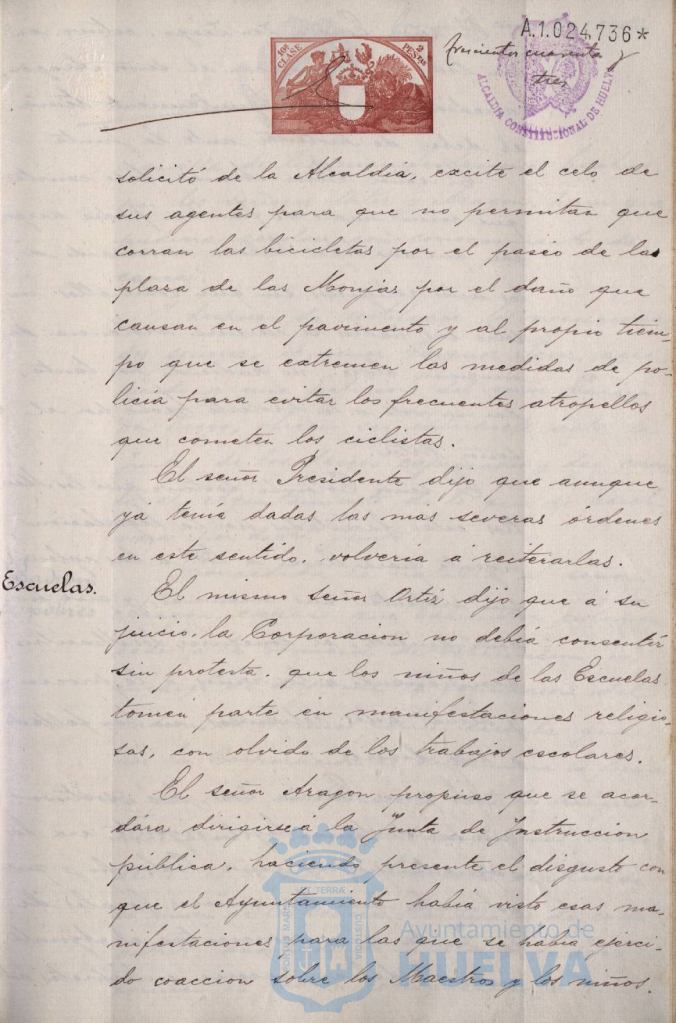 A.1.024,736*
10ª CLASE
2 PESETAS
trescientos cuarenta y
tres
ALCALDIA CONSTITUCIONAL DE HUELVA
solicitó de la Alcaldía, excite el celo de
sus agentes para que no permitan que
corran las bicicletas por el paseo de la
plaza de las Monjas por el daño que
causan en el pavimento y al propio tiem-
po que se extremen las medidas de po-
licía para evitar los frecuentes atropellos
que cometen los ciclistas.
El señor Presidente dijo que aunque
yá tenía dadas las mas severas órdenes
en este sentido, volvería á reiterarlas.
Escuelas.
El mismo señor Ortiz dijo que á su
juicio, la Corporacion no debía consentir
sin protesta, que los niños de las Escuelas
tomen parte en manifestaciones religio-
sas, con olvido de los trabajos escolares.
El señor Aragon propuso que se acor-
dára dirigirse á la Junta de Instruccion
pública, haciendo presente el disgusto con
que el Ayuntamiento había visto esas ma-
nifestaciones para las que se había ejerci-
do coaccion sobre los Maestros y los niños.
PORTUS MARIS ET TERRÆ CUSTODIA
Ayuntamiento de
HUELVA